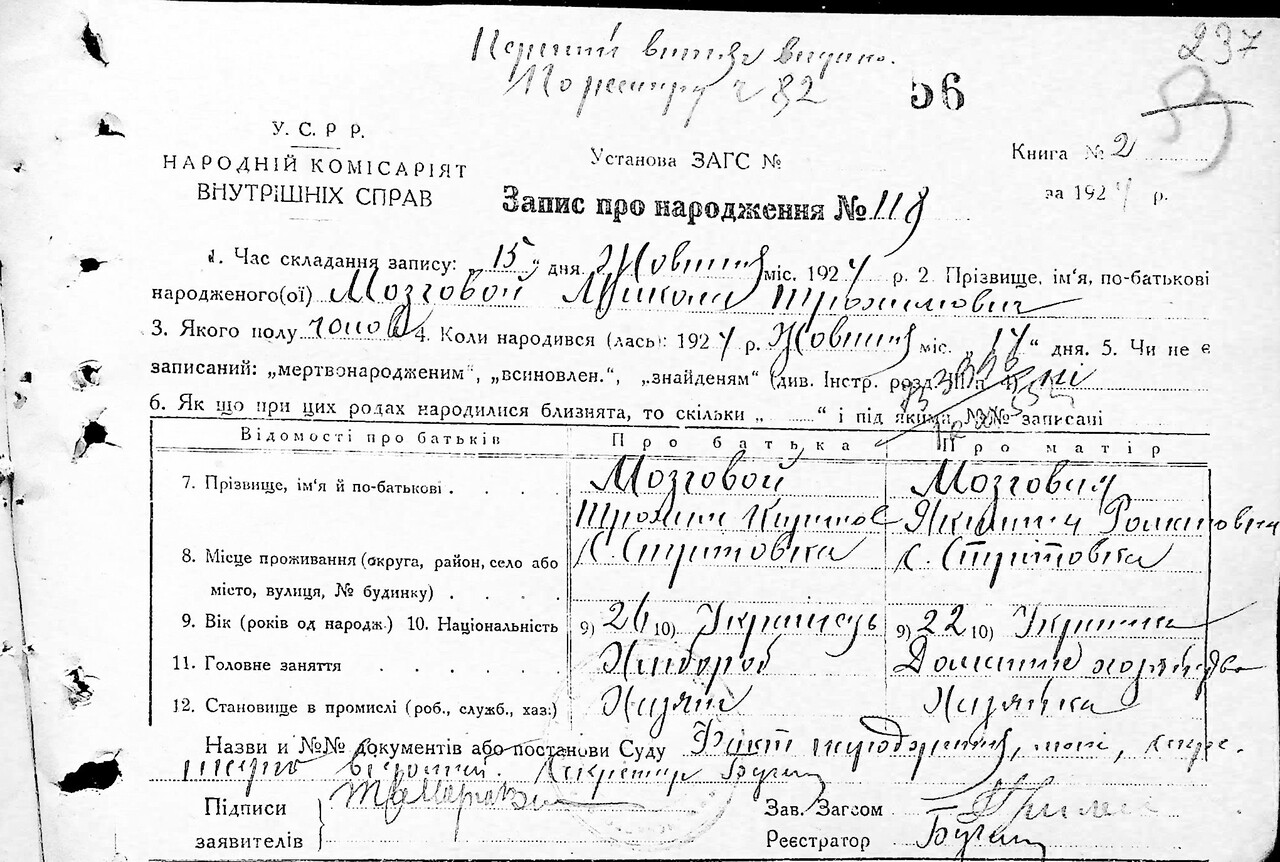 237
Перший витяг видано.
По реєстру ч 82
56
У. С. Р Р.
НАРОДНІЙ КОМІСАРІЯТ
ВНУТРІШНІХ СПРАВ
Установа ЗАГС №
Книга № 2
за 1924 р.
Запис про народження № 118
1. Час складання запису: „15„ дня. Жовтня міс. 1924 р. 2. Прізвище, ім‘я, по-батькові
народженого(ої) Мозговой Микола Трохимович
3. Якого полу чолов 4. Коли народився (лась): 1924 р. Жовтня міс. „14“ дня. 5. Чи не є
записаний: „мертвонародженим“, „всиновлен.“, „знайденям“ (див. Інстр. розд. III п 4) ні
6. Як що при цих родах народилися близнята, то скільки „ ...... “ і під якими №№ записані
Відомості про батьків Про батька Про матір
7. Прізвище, ім‘я й по-батькові . . . . . Мозговой Мозговая
Трохим Якилина Романовна
8. Місце проживання (округа, район, село або С. Стритовка С. Стритовка
місто, вулиця, № будинку) . . . .
9. Вік (років од народж.) 10. Національність 9) 26 10) Українець 9) 22 10) Українка
11. Головне заняття . . . . . Хлібороб Домашнє хозяйство
12. Становище в промислі (роб., служб., хаз.) Хазяїн Хазяйка
Назви и №№ документів або постанови Суду Факт народження,
відомий. Секретар
Підписи
заявителів
Зав. Загсом
Реєстратор